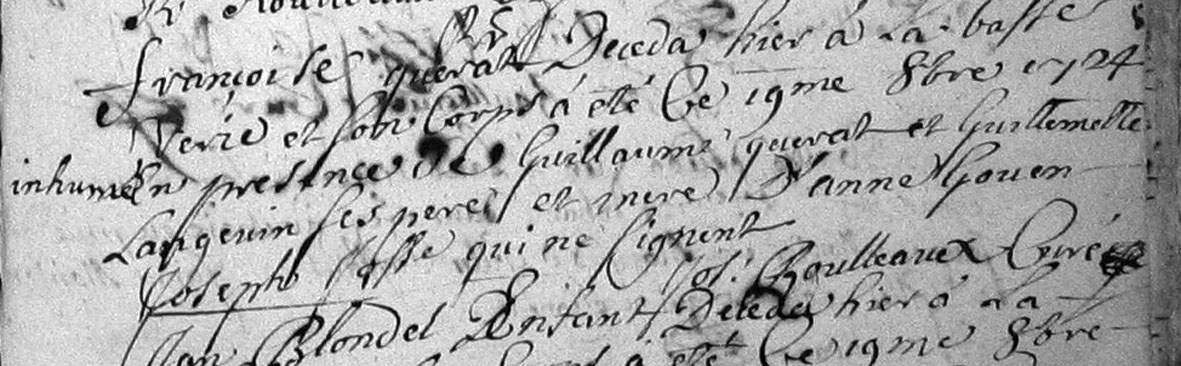 françoise querat Deceda hier a La basse
Verie et son Corps a été Ce 19me 8bre 1724
inhumé En presence de Guillaume querat et Guillemette
Langevin ses pere et mere D'anne Gouen
Joseph Josse qui ne signent
Jos: Roulleaux Curé
Jan Blondel Enfant Deceda hier a La
Corps a été Ce 19me 8bre